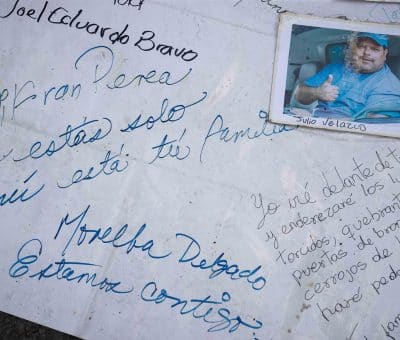 Joel Eduardo Bravo
Fran Perea
estás solo
está tú familia
Morelba Delgado
Estamos contigo.
Julio Velazco
Yo iré delante de t
y enderezaré los l
torcidos, quebrant
puertas de bron
cerrojos de
haré peda